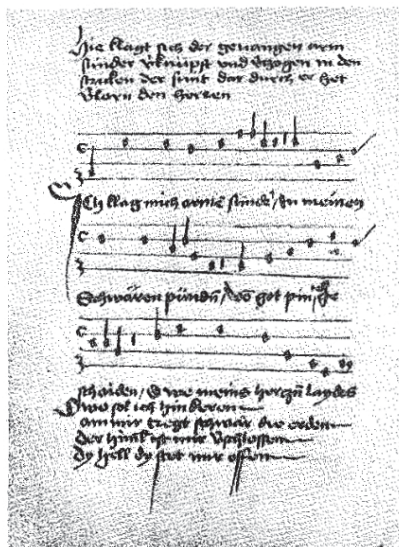 Hie klagt sich der geuangen arm
sunder vknüpft vnd vzogen in den
stricken der sunt dar durch er het
vlorn den herren
Ich klag mich arme sunde / In meinen
Schwären pündn / Das got pin ich
schaiden / O we meins herczn laydes
Owo sol ich hin keren
am mir tregt schwär die erden
der himl ist mir vschlossen
dy hell dy stet mir offen